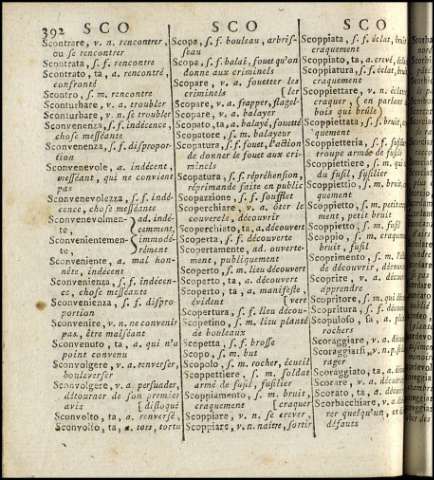 392 SCO SCO SCO
Scontrare, v. n. rencontrer,
ou se rencontrer
Scontrata, s. f. rencontre
Scontrato, ta, a. rencontré,
confronté
Scontro, s. m. rencontre
Sconturbare, v. a. troubler
Sconturbare, v. n. se troubler
Sconvenenza, s. f. indécence,
chose messéante
Sconvenenza, s. f. dispropor-
tion
Sconvenevole, a. indécent,
messéant, qui ne convient
pas
Sconvenevolezza, s. f. indé-
cence, chose messéante
Sconvenevolmen- ad. indé-
te, cemment,
Sconvenientemen- immodé-
te, rément
Sconveniente, a. mal hon-
nête, indécent
Sconvenienza, s. f. indécen-
ce, chose messéante
Sconvenienza, s. f. dispro-
portion
Sconvenire, v. n. ne convenir
pas, être malséant
Sconvenuto, ta, a. qui n'a
point convenu
Sconvolgere, v. a. renverser,
bouleverser
Sconvolgere, v. a. persuader,
détourner de son premier
avis (disloqué
Sconvolto, ta, a. renversé,
Sconvolto, ta, a. tors, tortu
Scopa, s. f. bouleau, arbris-
seau
Scopa, s. f. balai, fouet qu'on
donne aux criminels
Scopare, v. a. fouetter les
criminels (ler
Scopare, v. a. frapper, flagel-
Scopare, v. a. balayer
Scopato, ta, a. balayé, fouetté
Scopatore, s. m. balayeur
Scopatura, s. f. fouet, l'action
de donner le fouet aux cri-
minels
Scopatura, s. f. répréhension,
réprimande faite en public
Scopazzone, s. f. soufflet
Scoperchiare, v. a. ôter le
couvercle, découvrir
Scoperchiato, ta, a. découvert
Scoperta, s. f. découverte
Scopertamente, ad. ouverte-
ment, publiquement
Scoperto, s. m. lieu découvert
Scoperto, ta, a. découvert
Scoperto, ta, a. manifeste,
évident (vert
Scopertura, s. f. lieu décou-
Scopetino, s. m. lieu planté
de bouleaux
Scopetta, s. f. brosse
Scopo, s. m. but
Scopolo, s. m. rocher, écueil
Scoppettiere, s. m. soldat
armé de fusil, fusilier
Scoppiamento, s. m. bruit,
craquement (craquer
Scoppiare, v. n. se crever,
Scoppiare, v. n. naître, sortir
Scoppiata, s. f. éclat, bruit
craquement
Scoppiato, ta, a. crevé,
Scoppiatura, s. f. éclat, bruit
craquement
Scoppiettare, v. n.
craquer, (en parlant
bois qui brûle)
Scoppiettata, s. f. bruit,
quement
Scoppietteria, s. f.
troupe armée de fusil
Scoppiettiere, s. m.
du fusil, fusilier
Scoppiettio, s. m. bruit,
quement
Scoppietto, s. m. petit
ment, petit bruit
Scoppietto, s. m. fusil
Scoppio, s. m.
bruit, fusil
Scoprimento, s. m.
de découvrir,
Scoprire, v. a.
apprendre
Scopritore, s. m. qui
Scopritura, s. f.
Scopuloso, sa, a.
rochers
Scoraggiare, v. a.
Scoraggiarsi, v. n.
rager
Scoraggiato, ta, a.
Scorare, v. a.
Scorbacchiare, v. a.
rer quelqu'un,
défauts